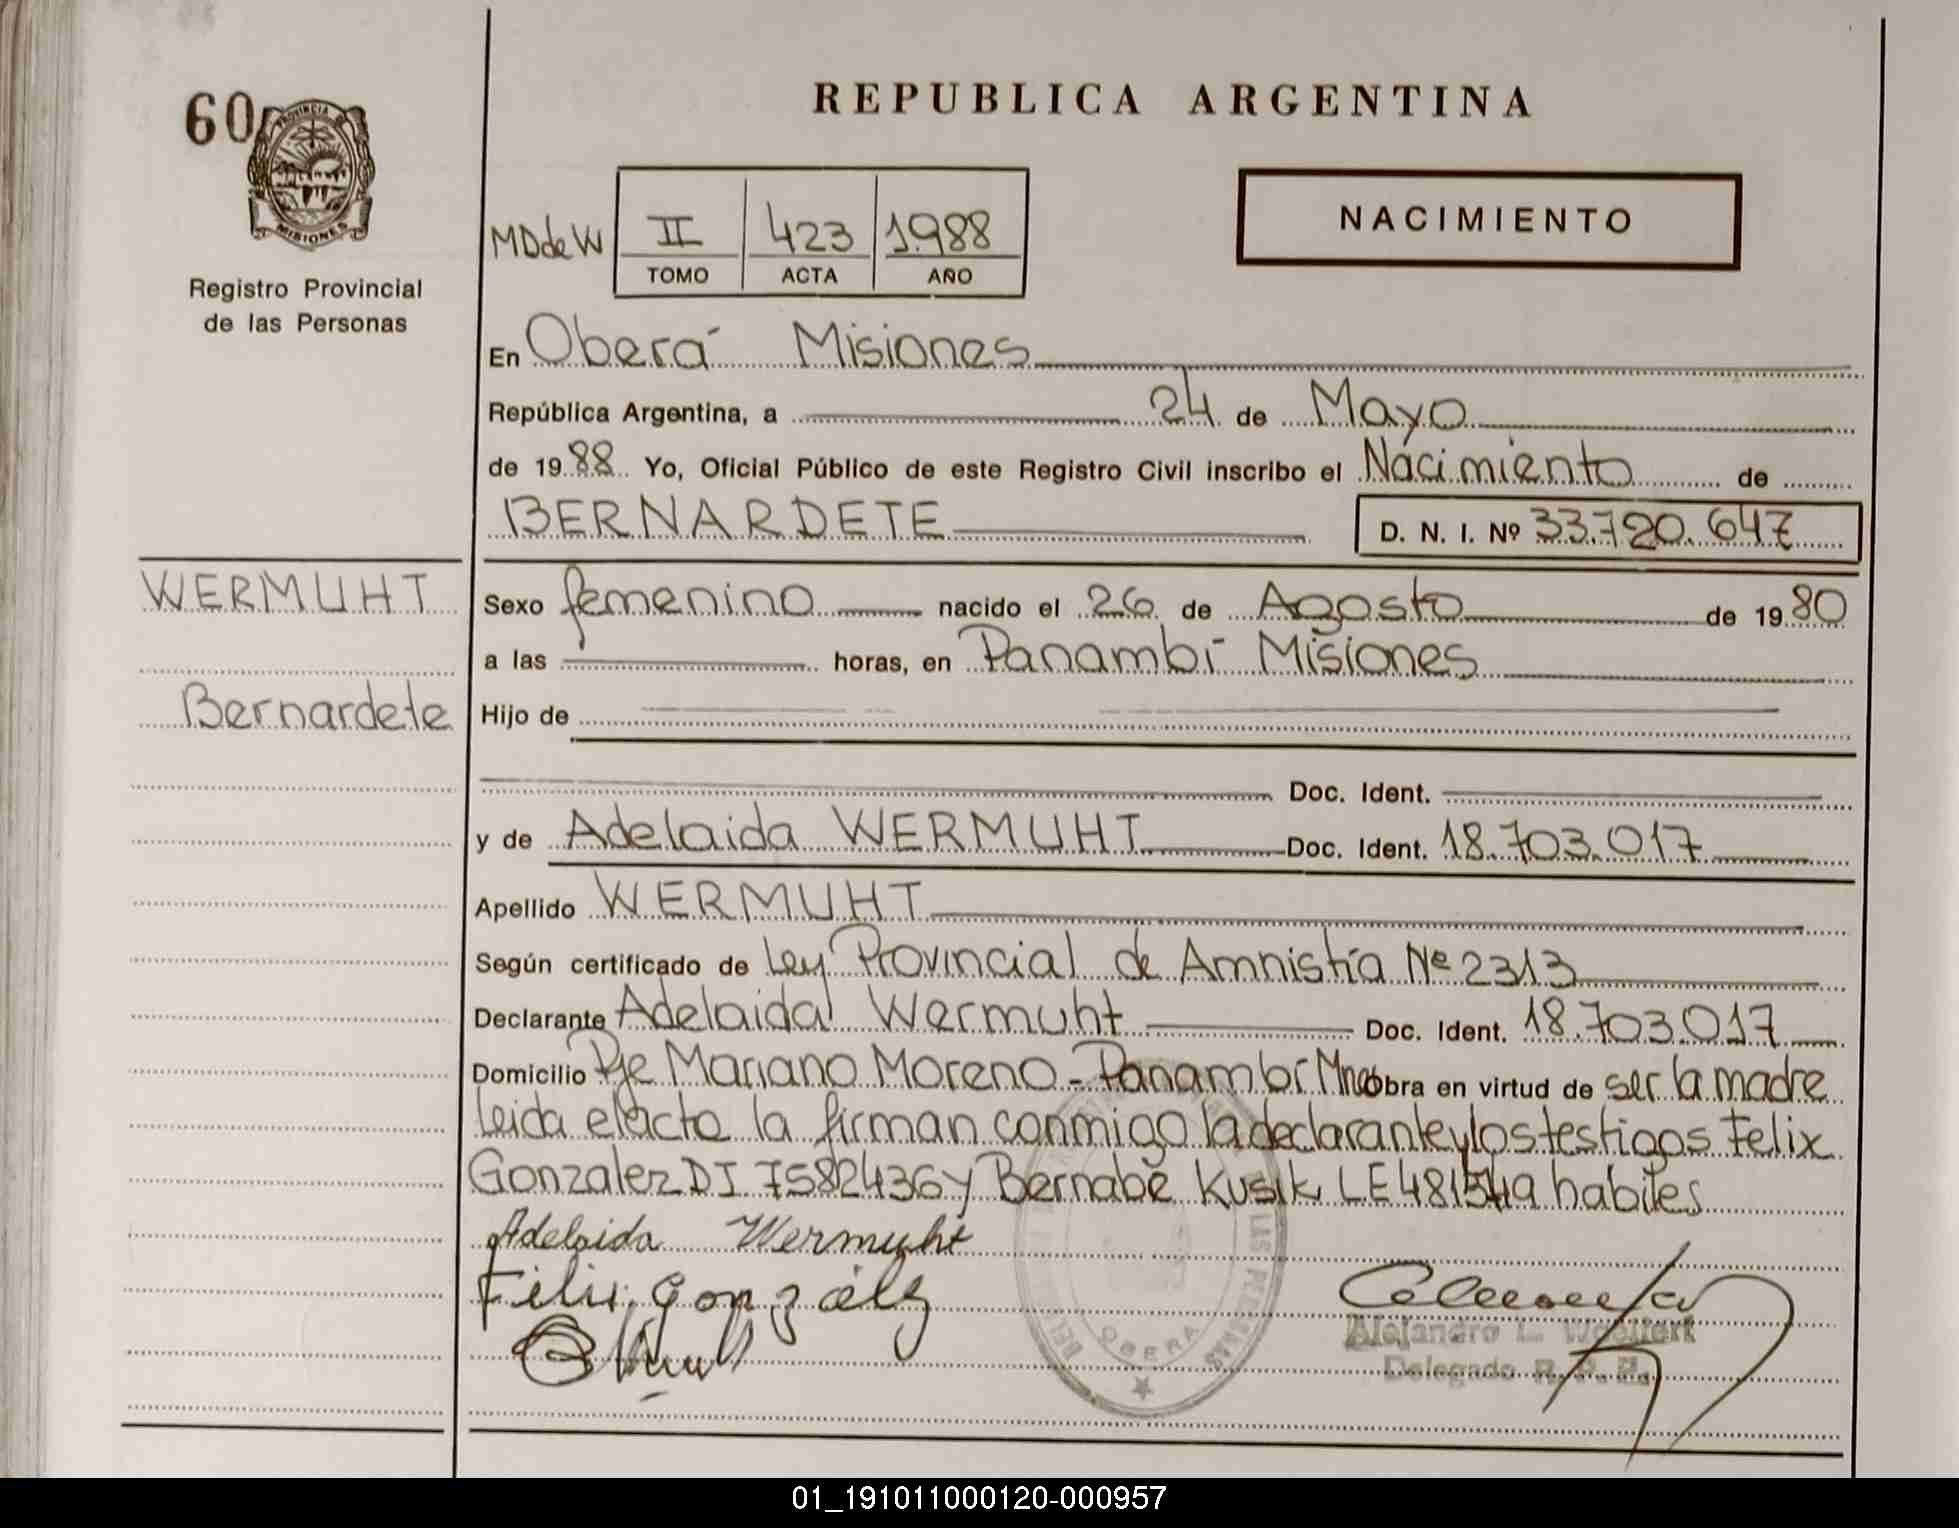 60
PROVINCIA DE
MISIONES
Registro Provincial
de las Personas
REPUBLICA ARGENTINA
MDdeW II 423 1.988
TOMO ACTA AÑO
NACIMIENTO
En Oberá Misiones
República Argentina, a 24 de Mayo
de 1988 Yo, Oficial Público de este Registro Civil inscribo el Nacimiento de
BERNARDETE D. N. I. Nº 33.720.647
WERMUHT
Bernardete
Sexo femenino nacido el 26 de Agosto de 1980
a las horas, en Panambí Misiones
Hijo de
Doc. Ident.
y de Adelaida WERMUHT Doc. Ident. 18.703.017
Apellido WERMUHT
Según certificado de Ley Provincial de Amnistía Nº 2313
Declarante Adelaida Wermuht Doc. Ident. 18.703.017
Domicilio Pje Mariano Moreno - Panambí Mnes obra en virtud de ser la madre
Leida el acta la firman conmigo la declarante y los testigos Felix
Gonzalez DI 7582436 y Bernabé Kusik LE habiles
Adelaida Wermuht
Felix Gonzalez
OBERA
Alejandro L.
Delegado R. P. P.
01_191011000120-000957